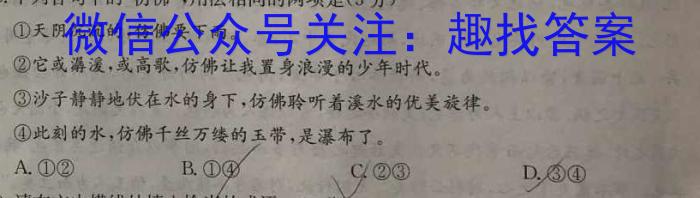 下列各句中的“仿佛”,用法相同的两项是(3分)
微信公众号关注：趣找答案
①天阴沉沉的,仿佛要下雨。
②它或潺湲,或高歌,仿佛让我置身浪漫的少年时代。
③沙子静静地伏在水的身下,仿佛聆听着溪水的优美旋律。
④此刻的水,仿佛千丝万缕的玉带,是瀑布了。
A. ①② B. ①④ C. ②③ D. ③④